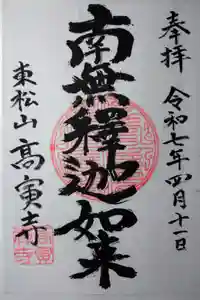 奉拝
令和七年四月十一日
南無釋迦如来
東松山
高寅寺